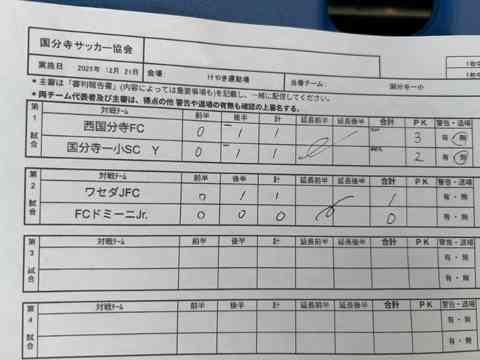 国分寺サッカー協会
実施日 2025年 12月 21日 会場: けやき運動場 当番チーム: 国分寺一小
＊主審は「審判報告書」(内容によっては重要事項も)を記載し、一緒に配信してください。
＊両チーム代表者及び主審は、得点の他 警告や退場の有無も確認の上署名する。
第1試合 対戦ﾁｰﾑ 前半 後半 計 延長前半 延長後半 合計 PK 警告・退場
西国分寺FC 0 1 1 3 有・無
国分寺一小SC Y 0 1 1 2 有・無
第2試合 対戦ﾁｰﾑ 前半 後半 計 延長前半 延長後半 合計 PK 警告・退場
ワセダJFC 0 1 1 1 有・無
FCドミーニJr. 0 0 0 0 有・無
第3試合 対戦ﾁｰﾑ 前半 後半 計 延長前半 延長後半 合計 PK 警告・退場
有・無
有・無
第4試合 対戦ﾁｰﾑ 前半 後半 計 延長前半 延長後半 合計 PK 警告・退場
有・無
有・無